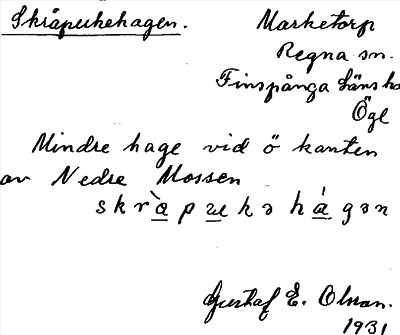 Skråpukehagen.
Marketorp
Regna sn.
Finspånga läns hd
Ögl
Mindre hage vid ö kanten
av Nedre Mossen
skràpukə hágən
Gustaf E. Olsson.
1931